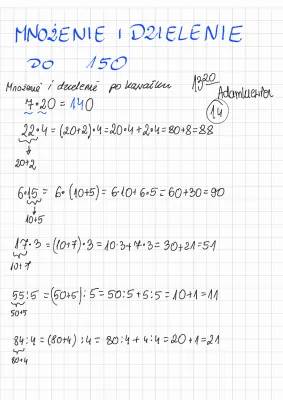 MNOŻENIE I DZIELENIE
DO 150
Mnożenie i dzielenie po kawałku
13 20
Adamkiewicz
14
7·20 = 140
22·4 = (20+2)·4 = 20·4 + 2·4 = 80+8 = 88
20+2
6·15 = 6·(10+5) = 6·10 + 6·5 = 60+30 = 90
10+5
17·3 = (10+7)·3 = 10·3 + 7·3 = 30+21 = 51
10+7
55:5 = (50+5):5 = 50:5 + 5:5 = 10+1 = 11
50+5
84:4 = (80+4):4 = 80:4 + 4:4 = 20+1 = 21
80+4